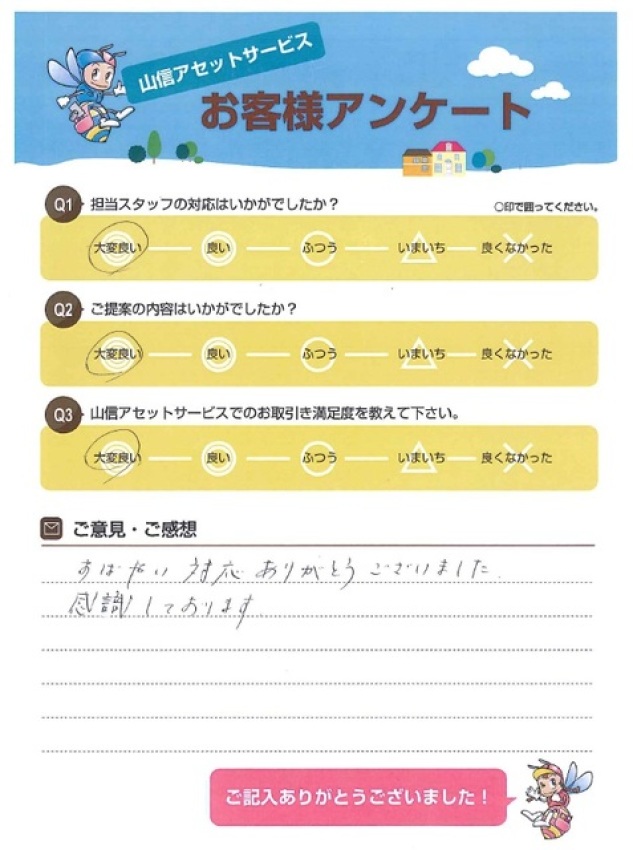 山信アセットサービス
お客様アンケート
Q1 担当スタッフの対応はいかがでしたか？ ○印で囲ってください。
大変良い 良い ふつう いまいち 良くなかった
Q2 ご提案の内容はいかがでしたか？
大変良い 良い ふつう いまいち 良くなかった
Q3 山信アセットサービスでのお取引き満足度を教えて下さい。
大変良い 良い ふつう いまいち 良くなかった
ご意見・ご感想
すばやい 対応 ありがとう ございました.
感識しております
ご記入ありがとうございました！